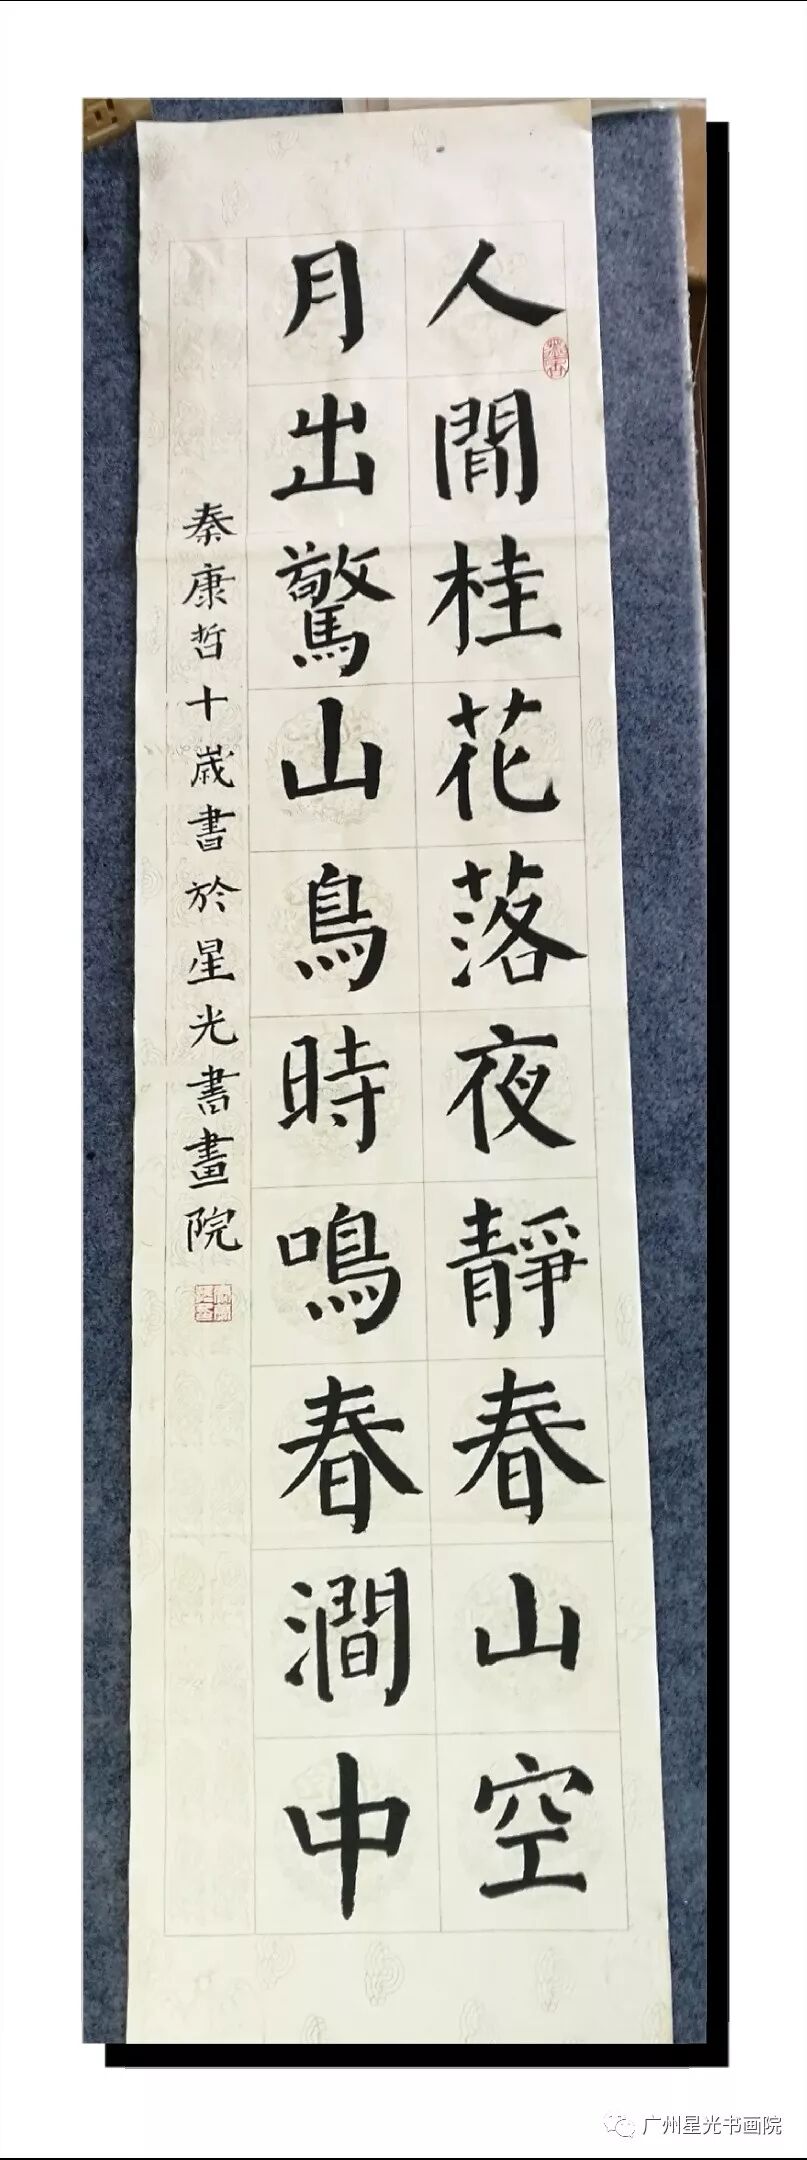 人閒桂花落夜靜春山空
月出驚山鳥時鳴春澗中
秦康哲十歲書於星光書畫院
广州星光书画院